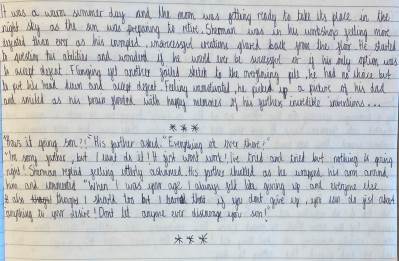 It was a warm summer day and the moon was getting ready to take its place in the
night sky as the sun was preparing to retire. Sherman was in his workshop feeling more
dejected than ever as his unsuccessful creations glared back from the floor. He started
to question his abilities and wondered if he would ever be successful or if his only option was
to accept defeat. Flinging yet another failed sketch to the overflowing pile, he had no choice but
to put his head down and accept defeat. Feeling unmotivated, he picked up a picture of his dad
and smiled as his brain flooded with happy memories of his fathers incredible inventions...
***
"How's it going son?!" His father asked. "Everything ok over there?"
"I'm sorry father, but I can't do it! It just won't work! I've tried and tried but nothing is going
right!" Sherman replied feeling utterly ashamed. His father chuckled as he wrapped his arm around
him and "When I was your age I always felt like giving up and everyone else
also thought I should too but I if you don't give up, you can do just about
anything to your desire! Don't let anyone ever discourage you son!"
***